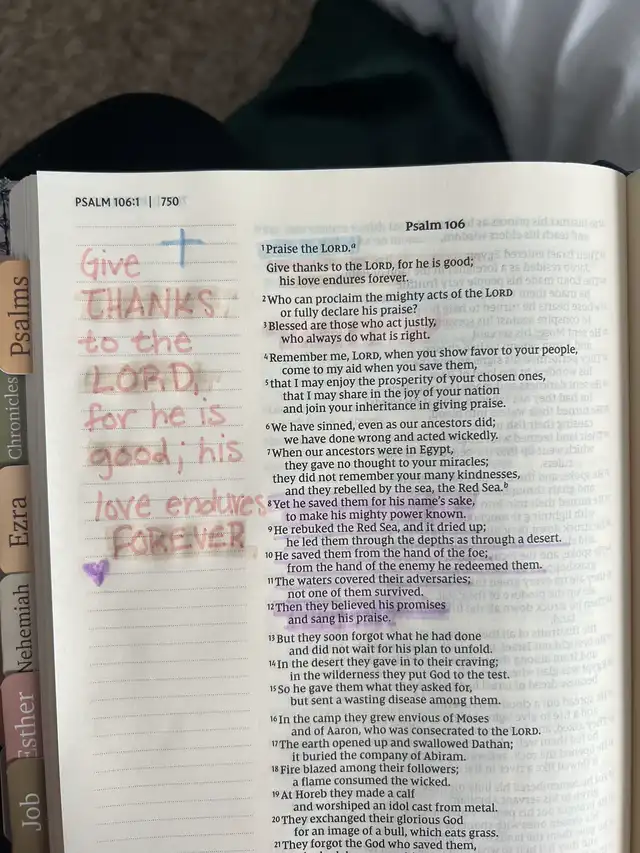 PSALM 106:1 | 750
Give
THANKS
to the
LORD,
for he is
good; his
love endures
FOREVER
Psalms
Chronicles
Ezra
Nehemiah
Esther
Job
Psalm 106
1 Praise the LORD.a
Give thanks to the LORD, for he is good;
his love endures forever.
2 Who can proclaim the mighty acts of the LORD
or fully declare his praise?
3 Blessed are those who act justly,
who always do what is right.
4 Remember me, LORD, when you show favor to your people,
come to my aid when you save them,
5 that I may enjoy the prosperity of your chosen ones,
that I may share in the joy of your nation
and join your inheritance in giving praise.
6 We have sinned, even as our ancestors did;
we have done wrong and acted wickedly.
7 When our ancestors were in Egypt,
they gave no thought to your miracles;
they did not remember your many kindnesses,
and they rebelled by the sea, the Red Sea.b
8 Yet he saved them for his name's sake,
to make his mighty power known.
9 He rebuked the Red Sea, and it dried up;
he led them through the depths as through a desert.
10 He saved them from the hand of the foe;
from the hand of the enemy he redeemed them.
11 The waters covered their adversaries;
not one of them survived.
12 Then they believed his promises
and sang his praise.
13 But they soon forgot what he had done
and did not wait for his plan to unfold.
14 In the desert they gave in to their craving;
in the wilderness they put God to the test.
15 So he gave them what they asked for,
but sent a wasting disease among them.
16 In the camp they grew envious of Moses
and of Aaron, who was consecrated to the LORD.
17 The earth opened up and swallowed Dathan;
it buried the company of Abiram.
18 Fire blazed among their followers;
a flame consumed the wicked.
19 At Horeb they made a calf
and worshiped an idol cast from metal.
20 They exchanged their glorious God
for an image of a bull, which eats grass.
21 They forgot the God who saved them,